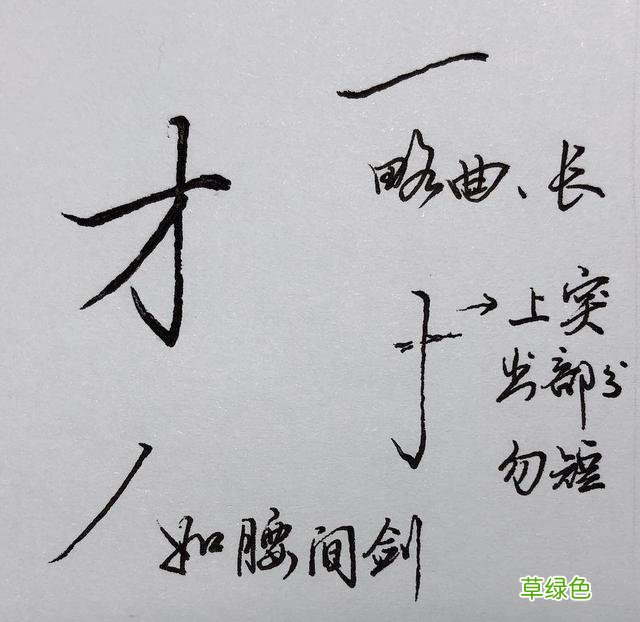 才
一
略曲、长
上突
出部分
勿短
丿
如腰间剑
草绿色